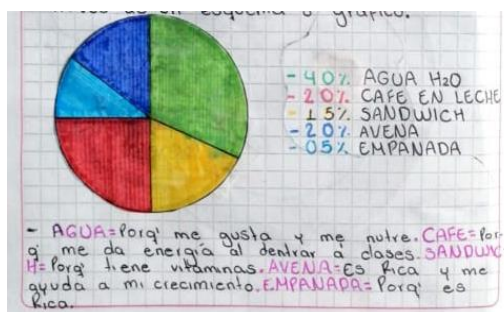 de un esquema y gráfico.
-40% AGUA H2O
-20% CAFE EN LECHE
-15% SANDWICH
-20% AVENA
-05% EMPANADA
- AGUA=Porq' me gusta y me nutre. CAFE=Por-
q' me da energía al dentrar a clases. SANDWIC
H=Porq' tiene vitaminas. AVENA=Es Rica y me
ayuda a mi crecimiento. EMPANADA=Porq' es
Rica.